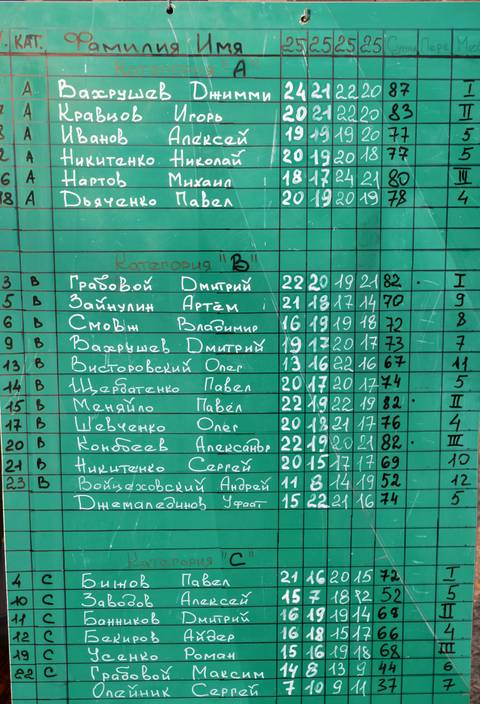 КАТ. Фамилия Имя 25 25 25 25 Сумм Пере Мес
Категория "А"
А Вахрушев Джимми 24 21 22 20 87 I
А Кравцов Игорь 20 21 22 20 83 II
А Иванов Алексей 19 19 19 20 77 5
А Никитенко Николай 20 19 20 18 77 5
6 А Нартов Михаил 18 17 24 21 80 III
18 А Дьяченко Павел 20 19 20 19 78 4
Категория "В"
3 В Грабовой Дмитрий 22 20 19 21 82 I
5 В Зайнулин Артём 21 18 17 14 70 9
6 В Смовж Владимир 16 19 19 18 72 8
9 В Вахрушев Дмитрий 19 17 20 17 73 7
13 В Висторовский Олег 13 16 22 16 67 11
14 В Щербатенко Павел 20 17 20 17 74 5
15 В Меняйло Павел 22 19 22 19 82 II
17 В Шевченко Олег 20 18 21 17 76 4
20 В Конбеев Александр 22 19 20 21 82 III
21 В Никитенко Сергей 20 15 17 17 69 10
23 В Войцеховский Андрей 11 8 14 19 52 12
Джемалединов Уфаат 15 22 21 16 74 5
Категория "С"
4 С Бижов Павел 21 16 20 15 72 I
10 С Заводов Алексей 15 7 18 12 52 5
11 С Банников Дмитрий 16 19 19 14 68 II
12 С Бекиров Айдер 16 18 15 17 66 4
19 С Усенко Роман 15 16 19 18 68 III
22 С Грабовой Максим 14 8 13 9 44 6
Олейник Сергей 7 10 9 11 37 7